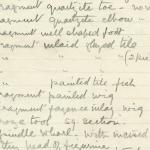 ragment quartzite toe - nov
agment quartzite elbow -
ragment well shaped foot
ragment inlaid glazed tile
" " (2 pie
" painted tile fish
agment painted wig
ragment faience inlay wig
tool sq. section
pindle whorl - with incised